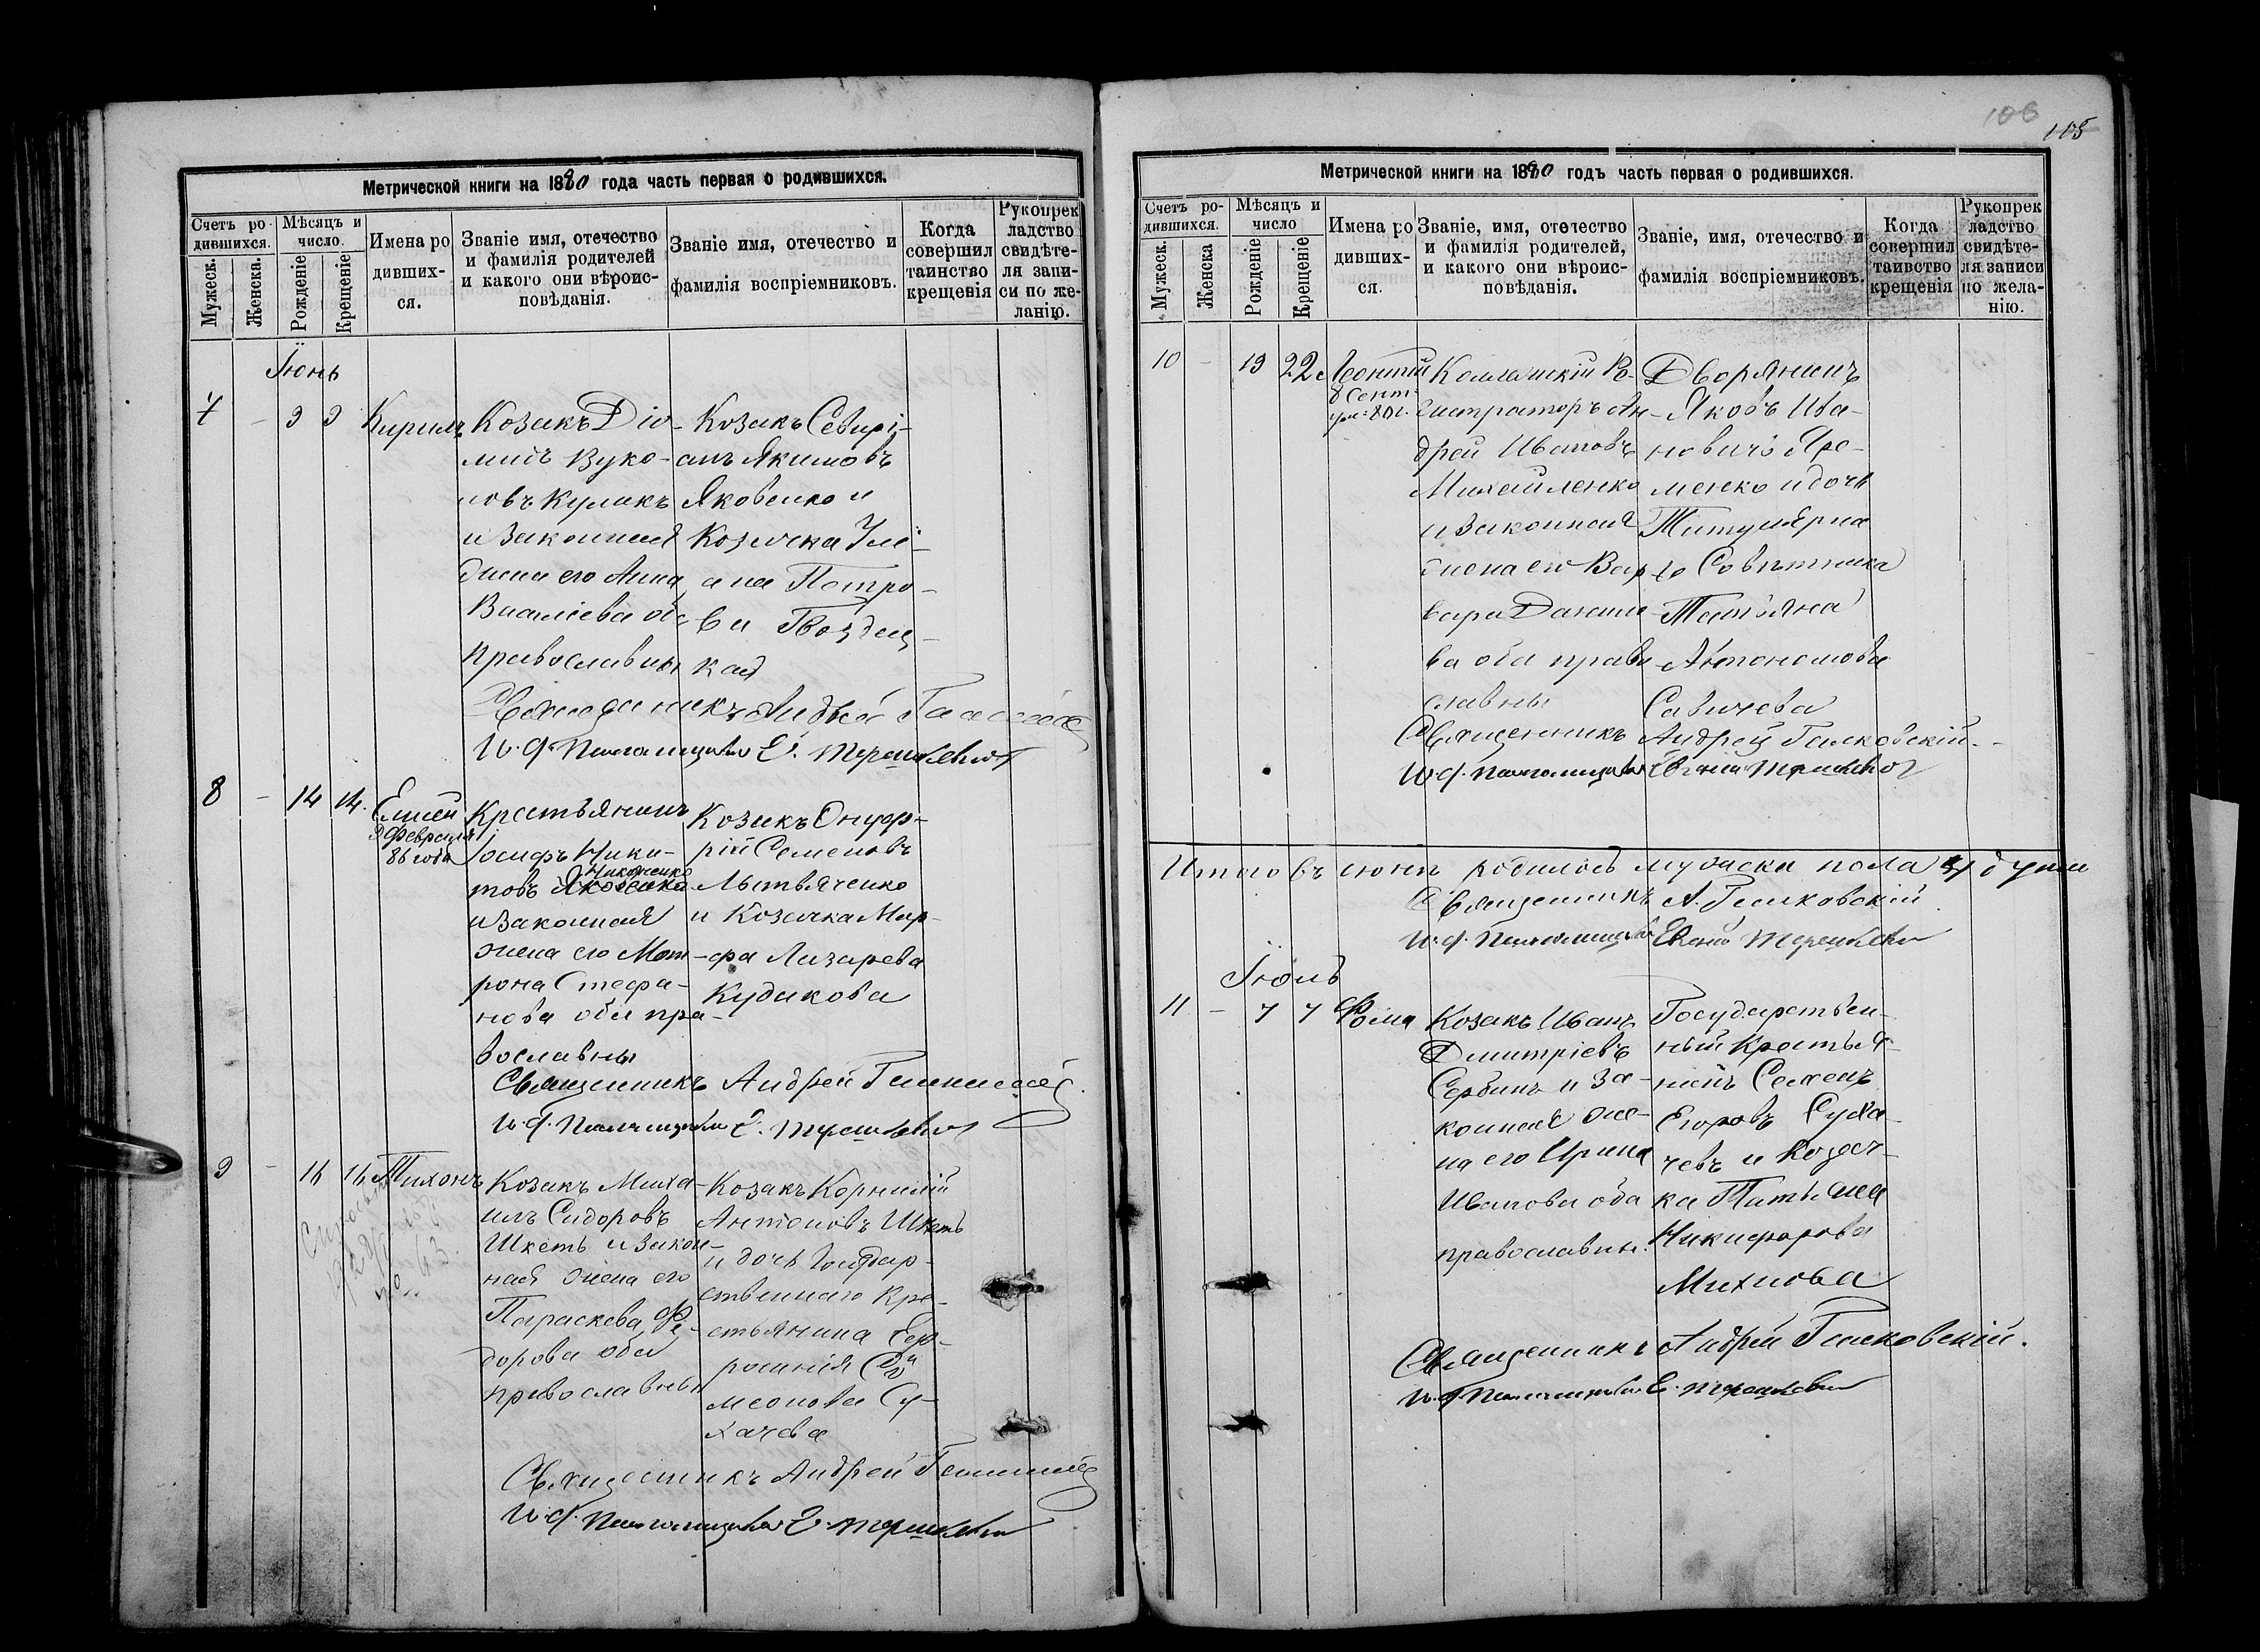 Метрической книги на 1880 года часть первая о родившихся.
Счетъ ро-дившихся.
Мужеск.
Женска.
Мѣсяцъ и число.
Рожденіе
Крещеніе
Имена родивших-ся.
Званіе имя, отечество и фамилія родителей и какого они вѣроис-повѣданія.
Званіе имя, отечество и фамилія воспріемниковъ.
Когда совершил таинство крещенія
Рукоприкладство свидѣте-ля запи-си по же-ланію.
Іюнь
7 - 9 9 Кирилъ
Козакъ Діо-
мидъ Вуко-
ловъ Куликъ
и законная
жена его Анна
Василіева оба
православны
Козакъ Севирі-
анъ Якимовъ
Яковенко и
Козачка Улі-
ана Петро-
ва Гвоздец-
кая
Священникъ Андрей
И. д. Псаломщика Е.
8 - 14 14. Елисей
9 Февраля
86 года
Крестьянинъ
Іосифъ Ники-
товъ
и законная
жена его Мот-
рона Стефа-
нова оба пра-
вославны
Козакъ Онуф-
рій Семеновъ
Литвяченко
и Козачка Мар-
фа Лазарева
Кудакова
Священникъ Андрей
И. д. Псаломщика Е.
9 - 16 16 Тихонъ
Козакъ Миха-
илъ Сидоровъ
Шкеть и закон-
ная жена его
Параскева Фе-
дорова оба
православны
Козакъ Корнилій
Антоновъ Шкеть
и дочь Государ-
ственнаго Кре-
стьянина Евф-
росинія Си-
меонова Су-
хачева
Священникъ Андрей
И. д. Псаломщика Е.
106
105
Метрической книги на 1880 годъ часть первая о родившихся.
Счетъ ро-дившихся.
Мужеск.
Женска
Мѣсяцъ и число
Рожденіе
Крещеніе
Имена ро дивших-ся.
Званіе, имя, отечество и фамилія родителей, и какого они вѣроис-повѣданія.
Званіе, имя, отечество и фамилія воспріемниковъ.
Когда совершил таинство крещенія
Рукоприкладство свидѣте-ля записи по жела-нію.
10 - 19 22 Леонтій
8 Сент.
Коллежскій Ре-
гистраторъ Ан-
дрей Ивановъ
Михайленко
и законная
жена его Вар-
вара Даниило-
ва оба право-
славны
Дворянинъ
Яковъ Ива-
новичъ Яре-
менко и дочь
Титулярна-
го Совѣтника
Татіяна
Автономова
Савичева
Священникъ Андрей Галковскій.
И. д. Псаломщика Евгеній
Итого въ іюнѣ родилось мужеска пола 4 души
Священникъ А. Галковскій
И. д. Псаломщика Евгеній
Іюль
11 - 7 7 Фома
Козакъ Иванъ
Дмитріевъ
Сербинъ и за-
конная же-
на его Ирина
Иванова оба
православны.
Государствен-
ный Крестья-
нинъ Семенъ
Егоровъ Суха-
чевъ и Козач-
ка Татьяна
Никифорова
Михнова
Священникъ Андрей Галковскій.
И. д. Псаломщика Е.